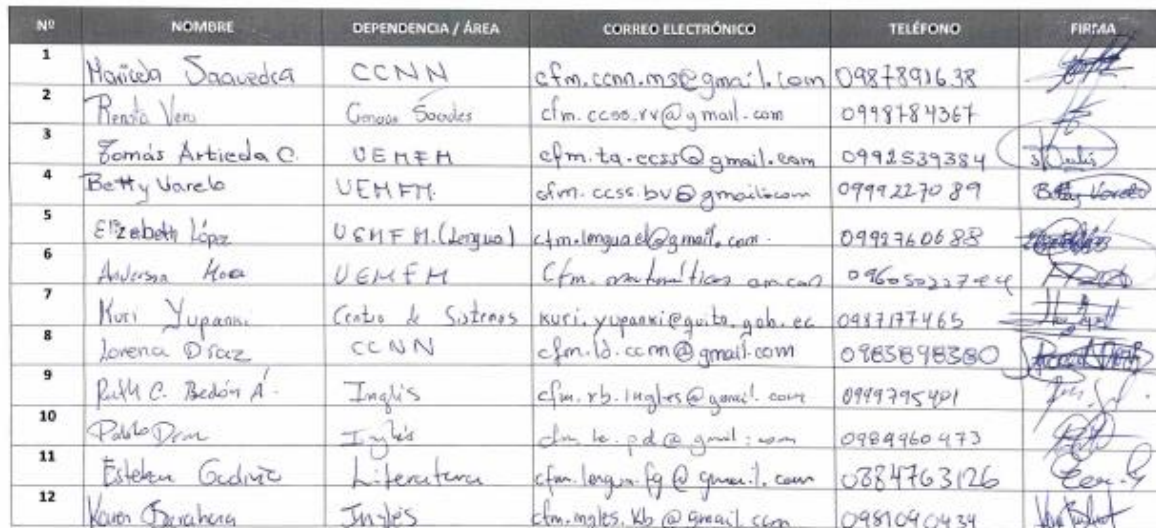 Nº NOMBRE DEPENDENCIA / ÁREA CORREO ELECTRÓNICO TELÉFONO FIRMA
1 Maricela Saavedra CCNN cfm.ccnn.ms@gmail.com 0987891638
2 Renata Vera cfm.ccss.rv@gmail.com 0998784367
3 Tomás Artieda C. UEMFM cfm.ta.ccss@gmail.com 0992539384
4 Betty Varela UEMFM. cfm.ccss.bv@gmail.com 0999227089 Betty Varela
5 Elizabeth López UEMFM.(Lengua) cfm.lengua.el@gmail.com. 0992760688
6 Anderson UEMFM cfm.
7 Kuri Yupanki Centro de Sistemas kuri.yupanki@quito.gob.ec 0987177465
8 Lorena Díaz CCNN cfm.ld.ccnn@gmail.com 0983898380
9 Ruth C. Bedón A. Inglés cfm.rb.ingles@gmail.com 0999795401
10 Pablo Inglés 0984960473
11 Esteban Literatura cfm.lengua.fg@gmail.com 0884763126
12 Karen Inglés cfm.ingles.kb@gmail.com 0981040434